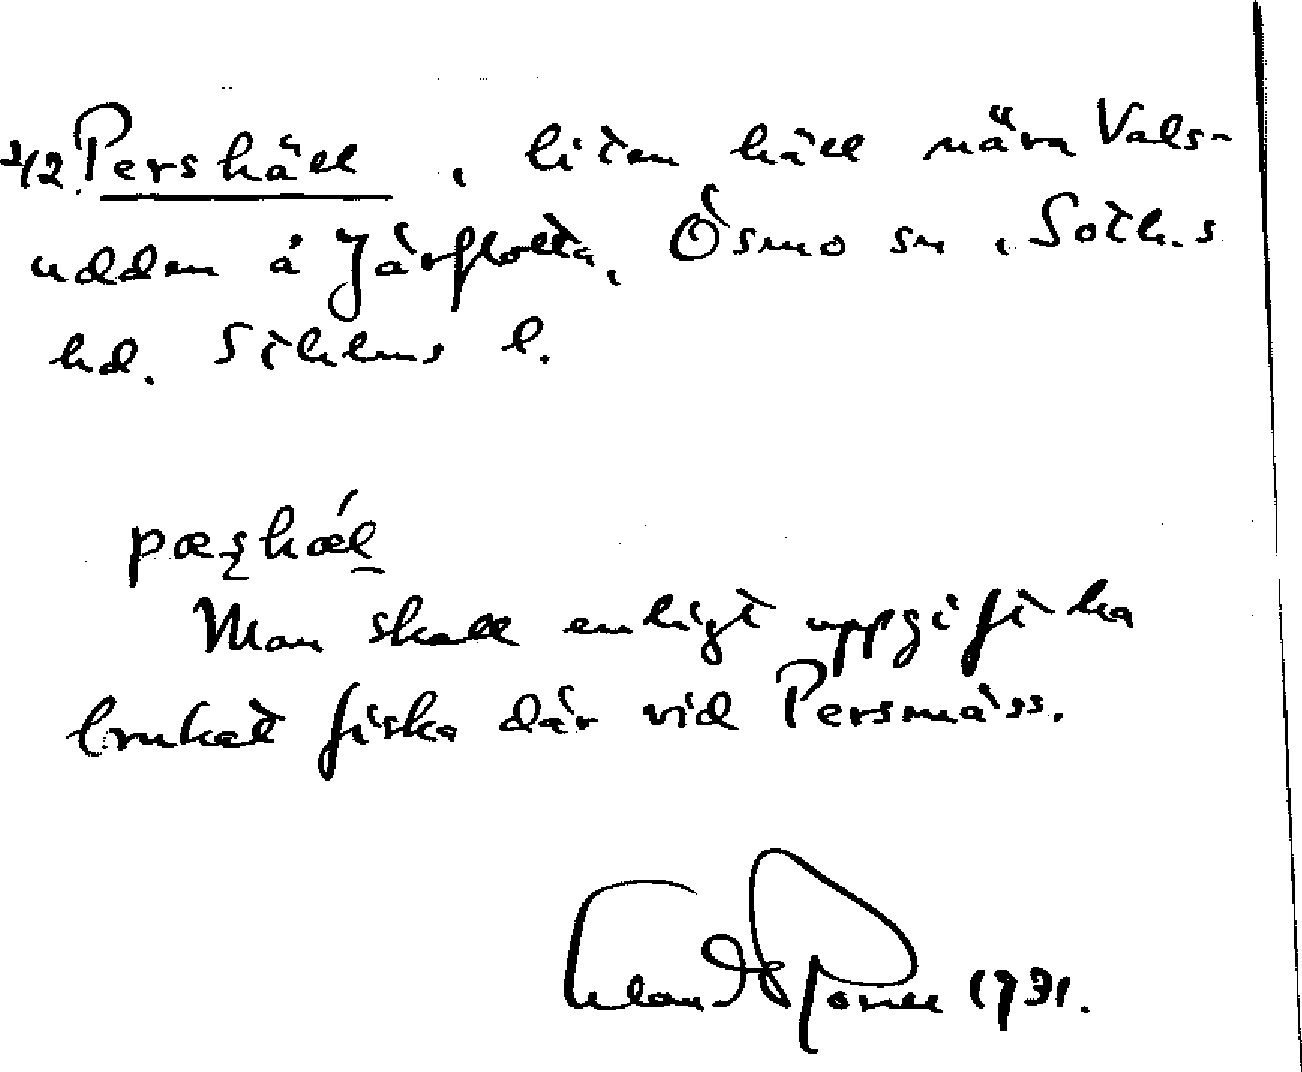 1/2 Pershäll, liten häll nära Vals-
udden å Järflotta, Ösmo sn, Soth.s
hd. Sthlms l.
pæʂhæl
Man skall enligt uppgift ha
brukat fiska där vid Persmäss.
1931.